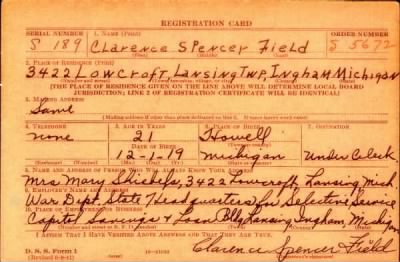 REGISTRATION CARD
SERIAL NUMBER 1. NAME (Print) ORDER NUMBER
S 189 Clarence Spencer Field S 5672
(First) (Middle) (Last)
2. PLACE OF RESIDENCE (Print)
3422 Lowcroft, Lansing Twp, Ingham Michigan
[THE PLACE OF RESIDENCE GIVEN ON THE LINE ABOVE WILL DETERMINE LOCAL BOARD
JURISDICTION; LINE 2 OF REGISTRATION CERTIFICATE WILL BE IDENTICAL]
3. MAILING ADDRESS
Same
[Mailing address if other than place indicated on line 2. If same insert word same]
4. TELEPHONE 5. AGE IN YEARS 6. PLACE OF BIRTH 7. OCCUPATION
none 21 Howell
DATE OF BIRTH
12-1-19 Michigan Under Clerk
8. NAME AND ADDRESS OF PERSON WHO WILL ALWAYS KNOW YOUR ADDRESS
Mrs Mary 3422 Lowcroft, Lansing Mich
9. EMPLOYER'S NAME AND ADDRESS
War Dept, State Headquarters for Selective Service
10. PLACE OF EMPLOYMENT OR BUSINESS
Capitol Savings & Loan Bldg Lansing, Ingham, Michigan
I AFFIRM THAT I HAVE VERIFIED ABOVE ANSWERS AND THAT THEY ARE TRUE.
D. S. S. Form 1 Clarence Spencer Field